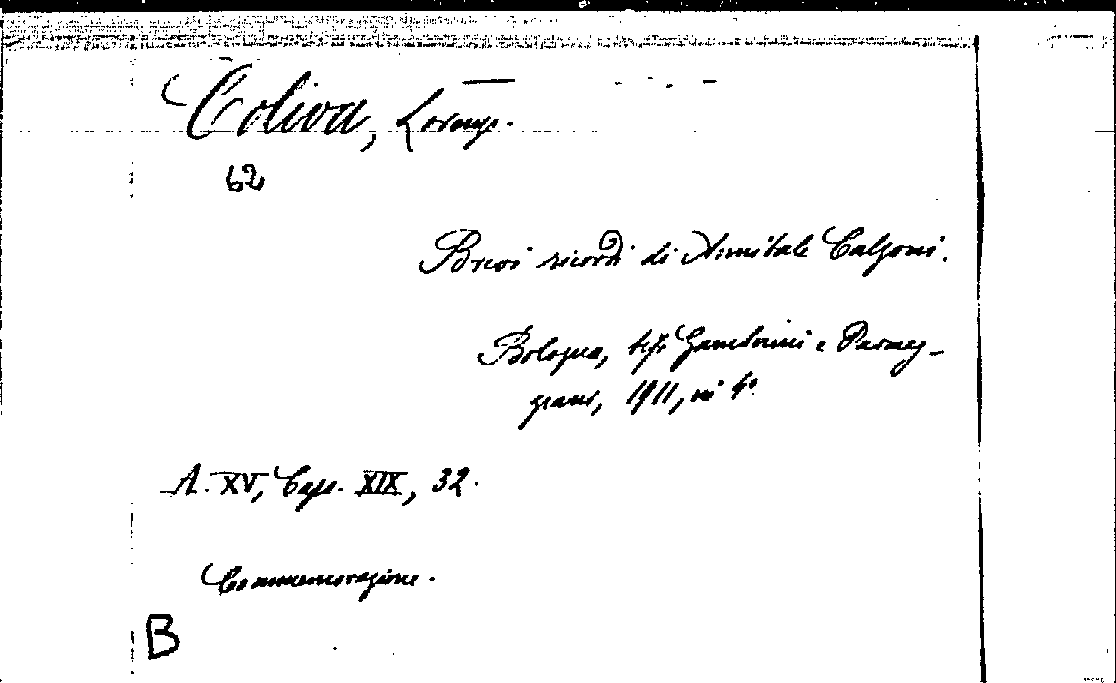 Coliva, Lorenzo.
62
Brevi ricordi di Annibale Calzoni.
Bologna, tip. Gamberini e Parmeg-
giani, 1911, in 4°.
A. XV, Caps. XIX, 32.
Commemorazione.
B